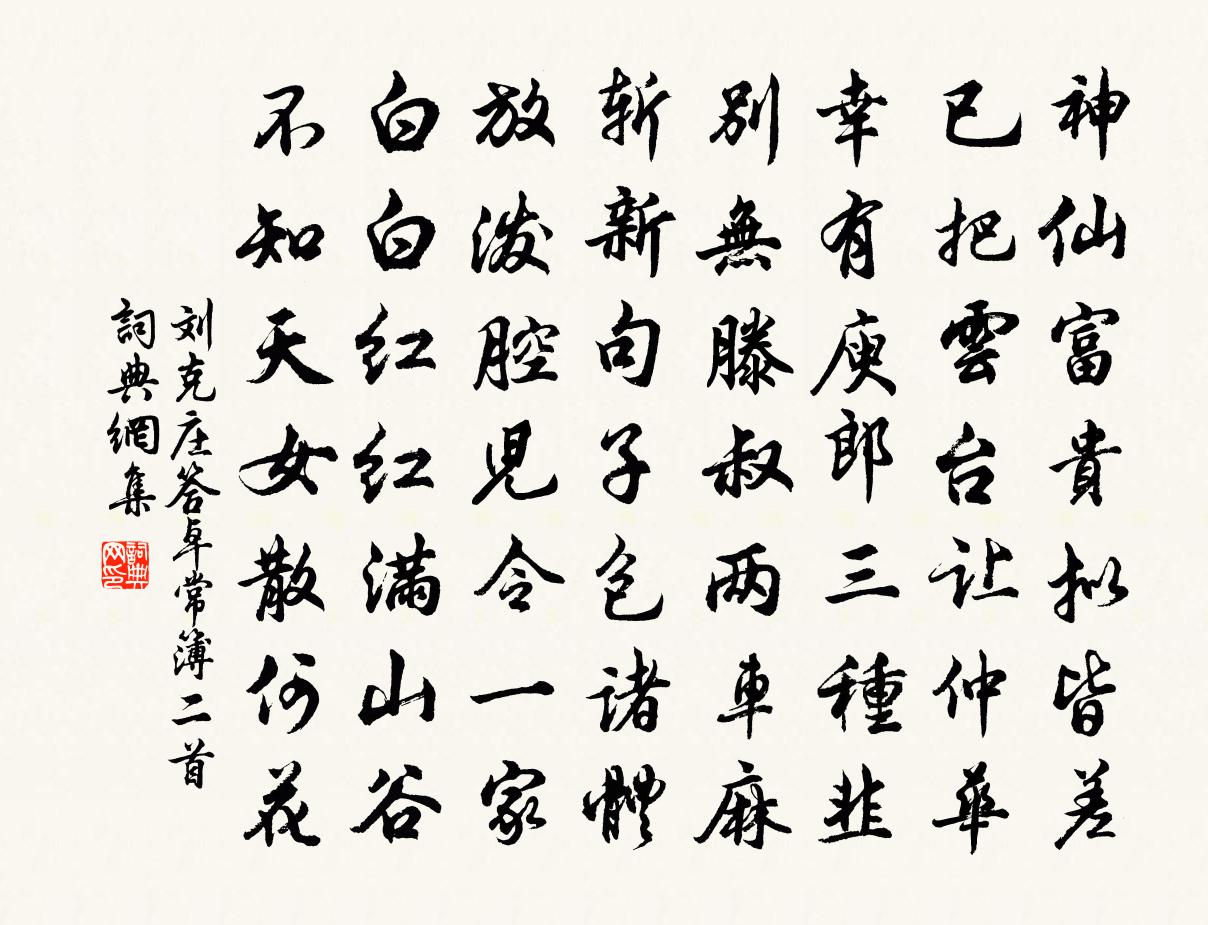 神仙富貴拟皆差
已把雲台让仲華
幸有庾郎三種韭
別無滕叔两車麻
斩新句子包诸體
放泼腔児令一家
白白红红满山谷
不知天女散何花
刘克庄答卓常簿二首
詞典網集
詞典网印